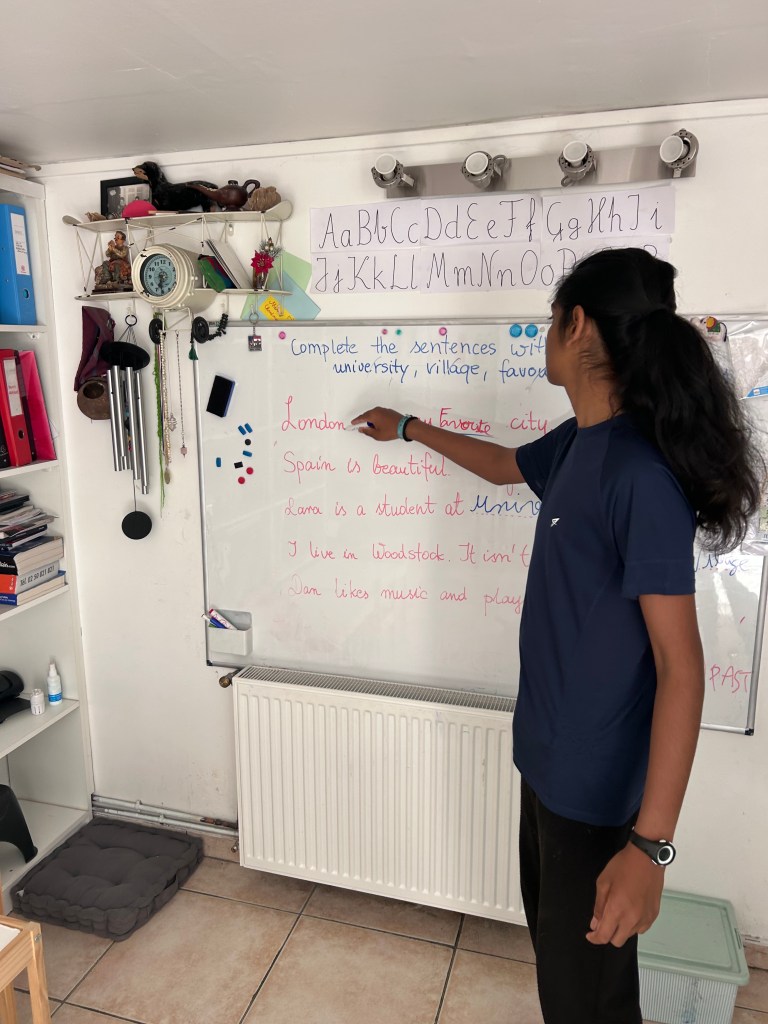 AaBbCcDdEeFfGgHhIi
JjKkLlMmNnOo
Complete the sentences with
university, village, favou
London Favorite city
Spain is beautiful.
Lara is a student at univer
I live in Woodstock. It isn't
Dan likes music and play
PAST